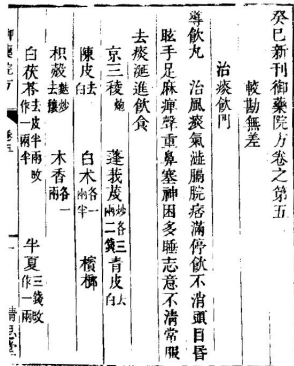 癸巳新刊御藥院方卷之第五
較勘無差
治痰飲門
導飲丸　治風痰氣澁膈脘痞滿停飲不消頭目昏
眩手足麻痺聲重鼻塞神困多睡志意不清常服
去痰涎進飲食
京三稜炮　蓬莪茂炒各三兩二錢　青皮去白
陳皮去白　白朮各一兩半　檳榔
枳殼麩炒去穰　木香各一兩
白茯苓去皮半兩改作一兩半　半夏三錢改作一兩
御藥院方　卷五　一　精思堂